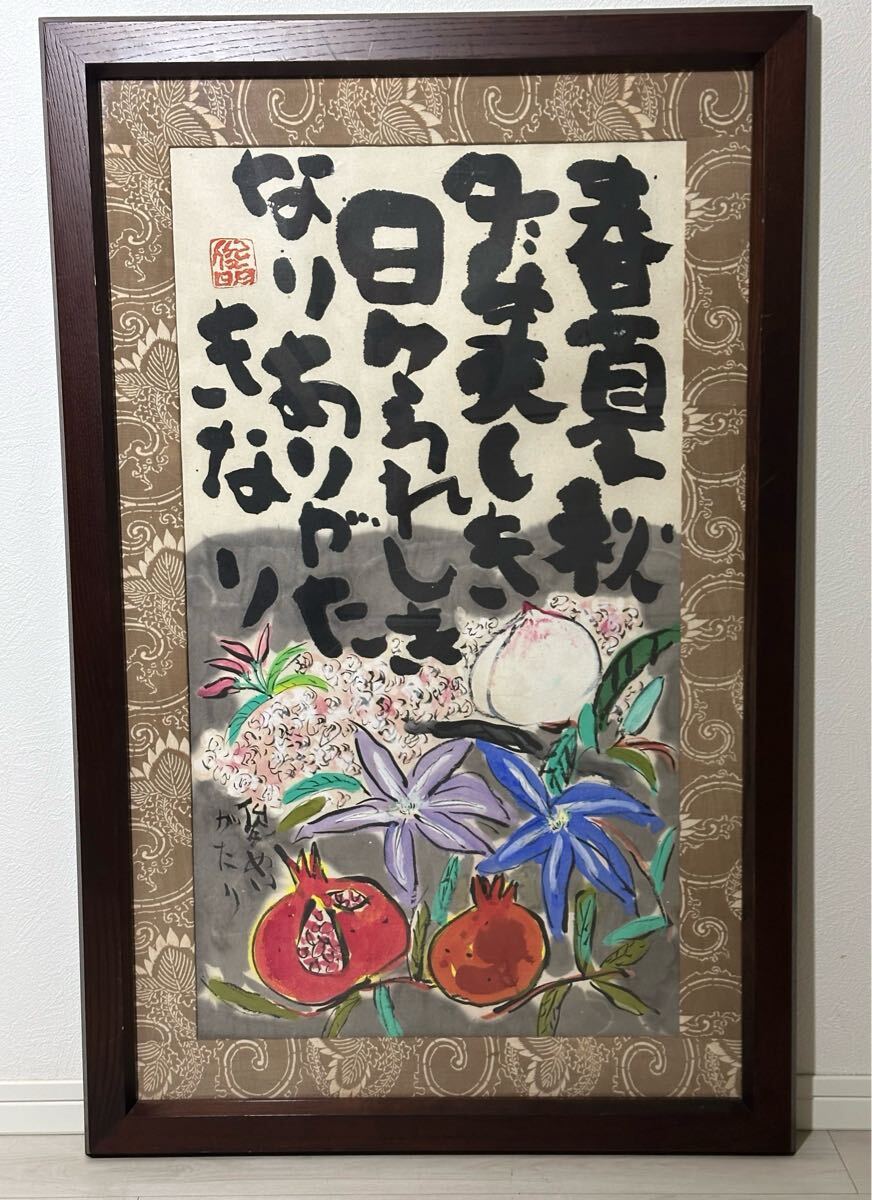 春夏秋
冬美しき
日々うれしき
なりありがた
きなり
俊明
がたり